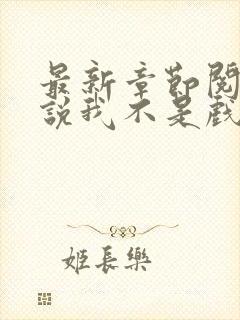 最新章節閱
說我不是戲
姬長樂